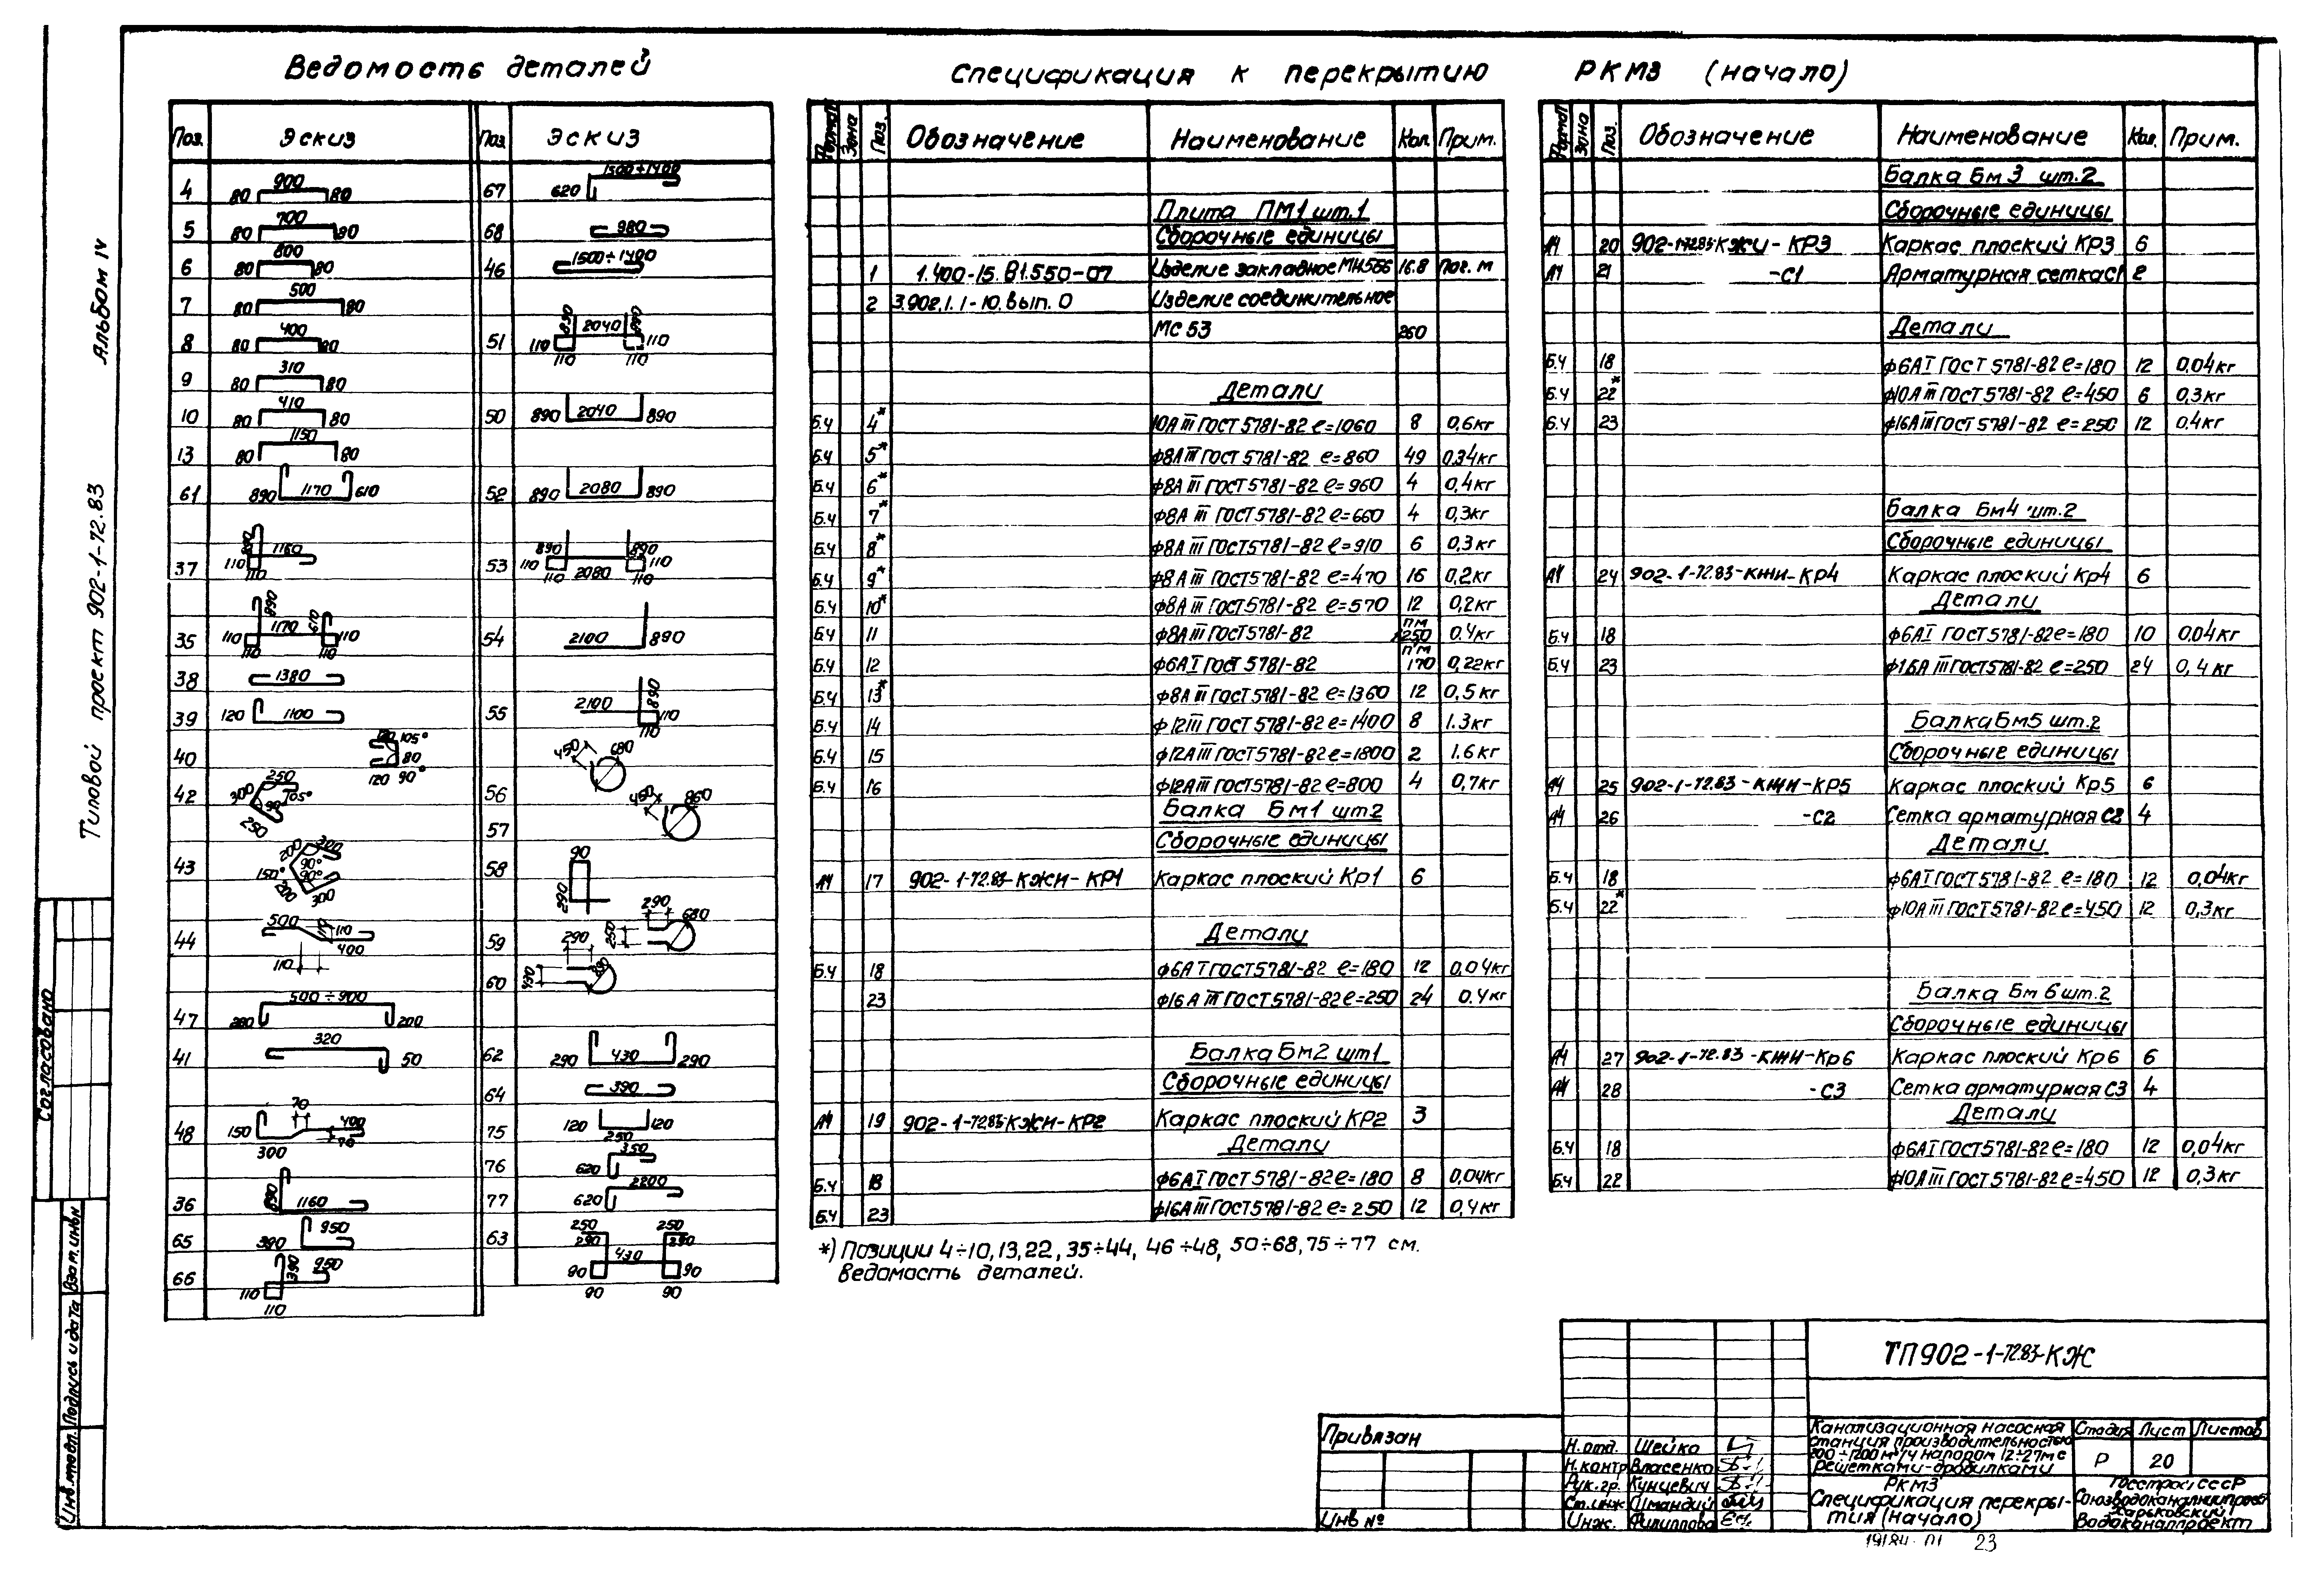 Ведомость деталей
Поз. Эскиз Поз. Эскиз
4 80 900 80
5 80 700 80
6 80 800 80
7 80 500 80
8 80 400 80
9 80 310 80
10 80 410 80
13 80 1150 80
61 890 1170 610
37 890 1160 110 110
35 890 1170 610 110 110 110 110
38 1380
39 120 1100
40 105° 80 120 90°
42 250 300 90° 105° 250
43 200 300 90° 150° 90° 200 300
44 500 110 110 400 110
47 500÷900 200 200
41 320 50
48 70 150 400 70 300
36 890 1160
65 390 950
66 390 950 110 110
67 620 1300÷1400
68 980
46 1500÷1400
51 890 2040 890 110 110 110 110
50 890 2040 890
52 890 2080 890
53 890 890 110 110 110 2080 110
54 2100 890
55 2100 890 110 110
56 450 680
57 450 860
58 90 290
59 290 680 250
60 290 490
62 290 430 290
64 390
75 120 250 120
76 350 620
77 2200 620
63 250 250 290 290 430 90 90 90 90
Спецификация к перекрытию РКМЗ (начало)
Формат Зона Поз. Обозначение Наименование Кол. Прим.
Плита ПМ1 шт.1
Сборочные единицы
1 1.400-15.В1.550-07 Изделие закладное МН556 16.8 пог. м
2 3.902.1.1-10. вып. 0 Изделие соединительное
МС 53 260
Детали
Б.ч 4* 10А III ГОСТ 5781-82 ℓ=1060 8 0,6кг
Б.ч 5* ф8А III ГОСТ 5781-82 ℓ=860 49 0.34кг
Б.ч 6* ф8А III ГОСТ 5781-82 ℓ=960 4 0,4кг
Б.ч 7* ф8А III ГОСТ 5781-82 ℓ=660 4 0,3кг
Б.ч 8* ф8А III ГОСТ 5781-82 ℓ=910 6 0,3кг
Б.ч 9* ф8А III ГОСТ 5781-82 ℓ=470 16 0,2кг
Б.ч 10* ф8А III ГОСТ 5781-82 ℓ=570 12 0,2кг
Б.ч 11 ф8А III ГОСТ 5781-82 пм 1250 0,4кг
Б.ч 12 ф6А I ГОСТ 5781-82 п'м 170 0,22кг
Б.ч 13* ф8А III ГОСТ 5781-82 ℓ=1360 12 0,5кг
Б.ч 14 ф12 III ГОСТ 5781-82 ℓ=1400 8 1.3кг
Б.ч 15 ф12А III ГОСТ 5781-82 ℓ=1800 2 1.6кг
Б.ч 16 ф12А III ГОСТ 5781-82 ℓ=800 4 0,7кг
Балка Бм1 шт2
Сборочные единицы
А4 17 902-1-72.83-КЖИ-КР1 Каркас плоский Кр1 6
Детали
Б.ч 18 ф6А I ГОСТ 5781-82 ℓ=180 12 0,04кг
23 ф16А III ГОСТ 5781-82 ℓ=250 24 0.4кг
Балка Бм2 шт1
Сборочные единицы
А4 19 902-1-72.83КЖИ-КР2 Каркас плоский КР2 3
Детали
Б.ч 18 ф6А I ГОСТ 5781-82 ℓ=180 8 0,04кг
Б.ч 23 ф16А III ГОСТ 5781-82 ℓ=250 12 0,4кг
*) Позиции 4÷10, 13, 22, 35÷44, 46÷48, 50÷68, 75÷77 см.
ведомость деталей.
Формат Зона Поз. Обозначение Наименование Кол. Прим.
Балка Бм3 шт.2
Сборочные единицы
А4 20 902-1-72.83КЖИ-КР3 Каркас плоский КР3 6
А4 21 -С1 Арматурная сетка С1 2
Детали
Б.ч 18 ф6А I ГОСТ 5781-82 ℓ=180 12 0,04кг
Б.ч 22* ф10А III ГОСТ 5781-82 ℓ=450 6 0,3кг
Б.ч 23 ф16А III ГОСТ 5781-82 ℓ=250 12 0.4кг
Балка Бм4 шт.2
Сборочные единицы
А4 24 902-1-72.83-КЖИ-КР4 Каркас плоский Кр4 6
Детали
Б.ч 18 ф6А I ГОСТ 5781-82 ℓ=180 10 0.04кг
Б.ч 23 ф16А III ГОСТ 5781-82 ℓ=250 24 0,4кг
Балка Бм5 шт.2
Сборочные единицы
А4 25 902-1-72.83-КЖИ-КР5 Каркас плоский Кр5 6
А4 26 -С2 Сетка арматурная С2 4
Детали
Б.ч 18 ф6А I ГОСТ 5781-82 ℓ=180 12 0,04кг
Б.ч 22* ф10А III ГОСТ 5781-82 ℓ=450 12 0,3кг
Балка Бм6 шт.2
Сборочные единицы
А4 27 902-1-72.83-КЖИ-Кр6 Каркас плоский Кр6 6
А4 28 -С3 Сетка арматурная С3 4
Детали
Б.ч 18 ф6А I ГОСТ 5781-82 ℓ=180 12 0,04кг
Б.ч 22 ф10А III ГОСТ 5781-82 ℓ=450 12 0,3кг
Альбом IV
Типовой проект 902-1-72.83
Согласовано
Инв.№подл. Подпись и дата Взам.инв№
Привязан
Инв №
ТП902-1-72.83-КЖ
Н.отд. Шейко
Н.контр Власенко
Рук.гр. Кунцевич
Ст.инж Шмандий
Инж. Филиппова
Канализационная насосная
станция производительностью
200÷1200 м³/ч напором 12÷27м с
решетками-дробилками
Стадия Лист Листов
Р 20
РКМЗ
Спецификация перекры-
тия (начало)
Госстрой СССР
Союзводоканалниипроект
Харьковский
Водоканалпроект
19184-01 23